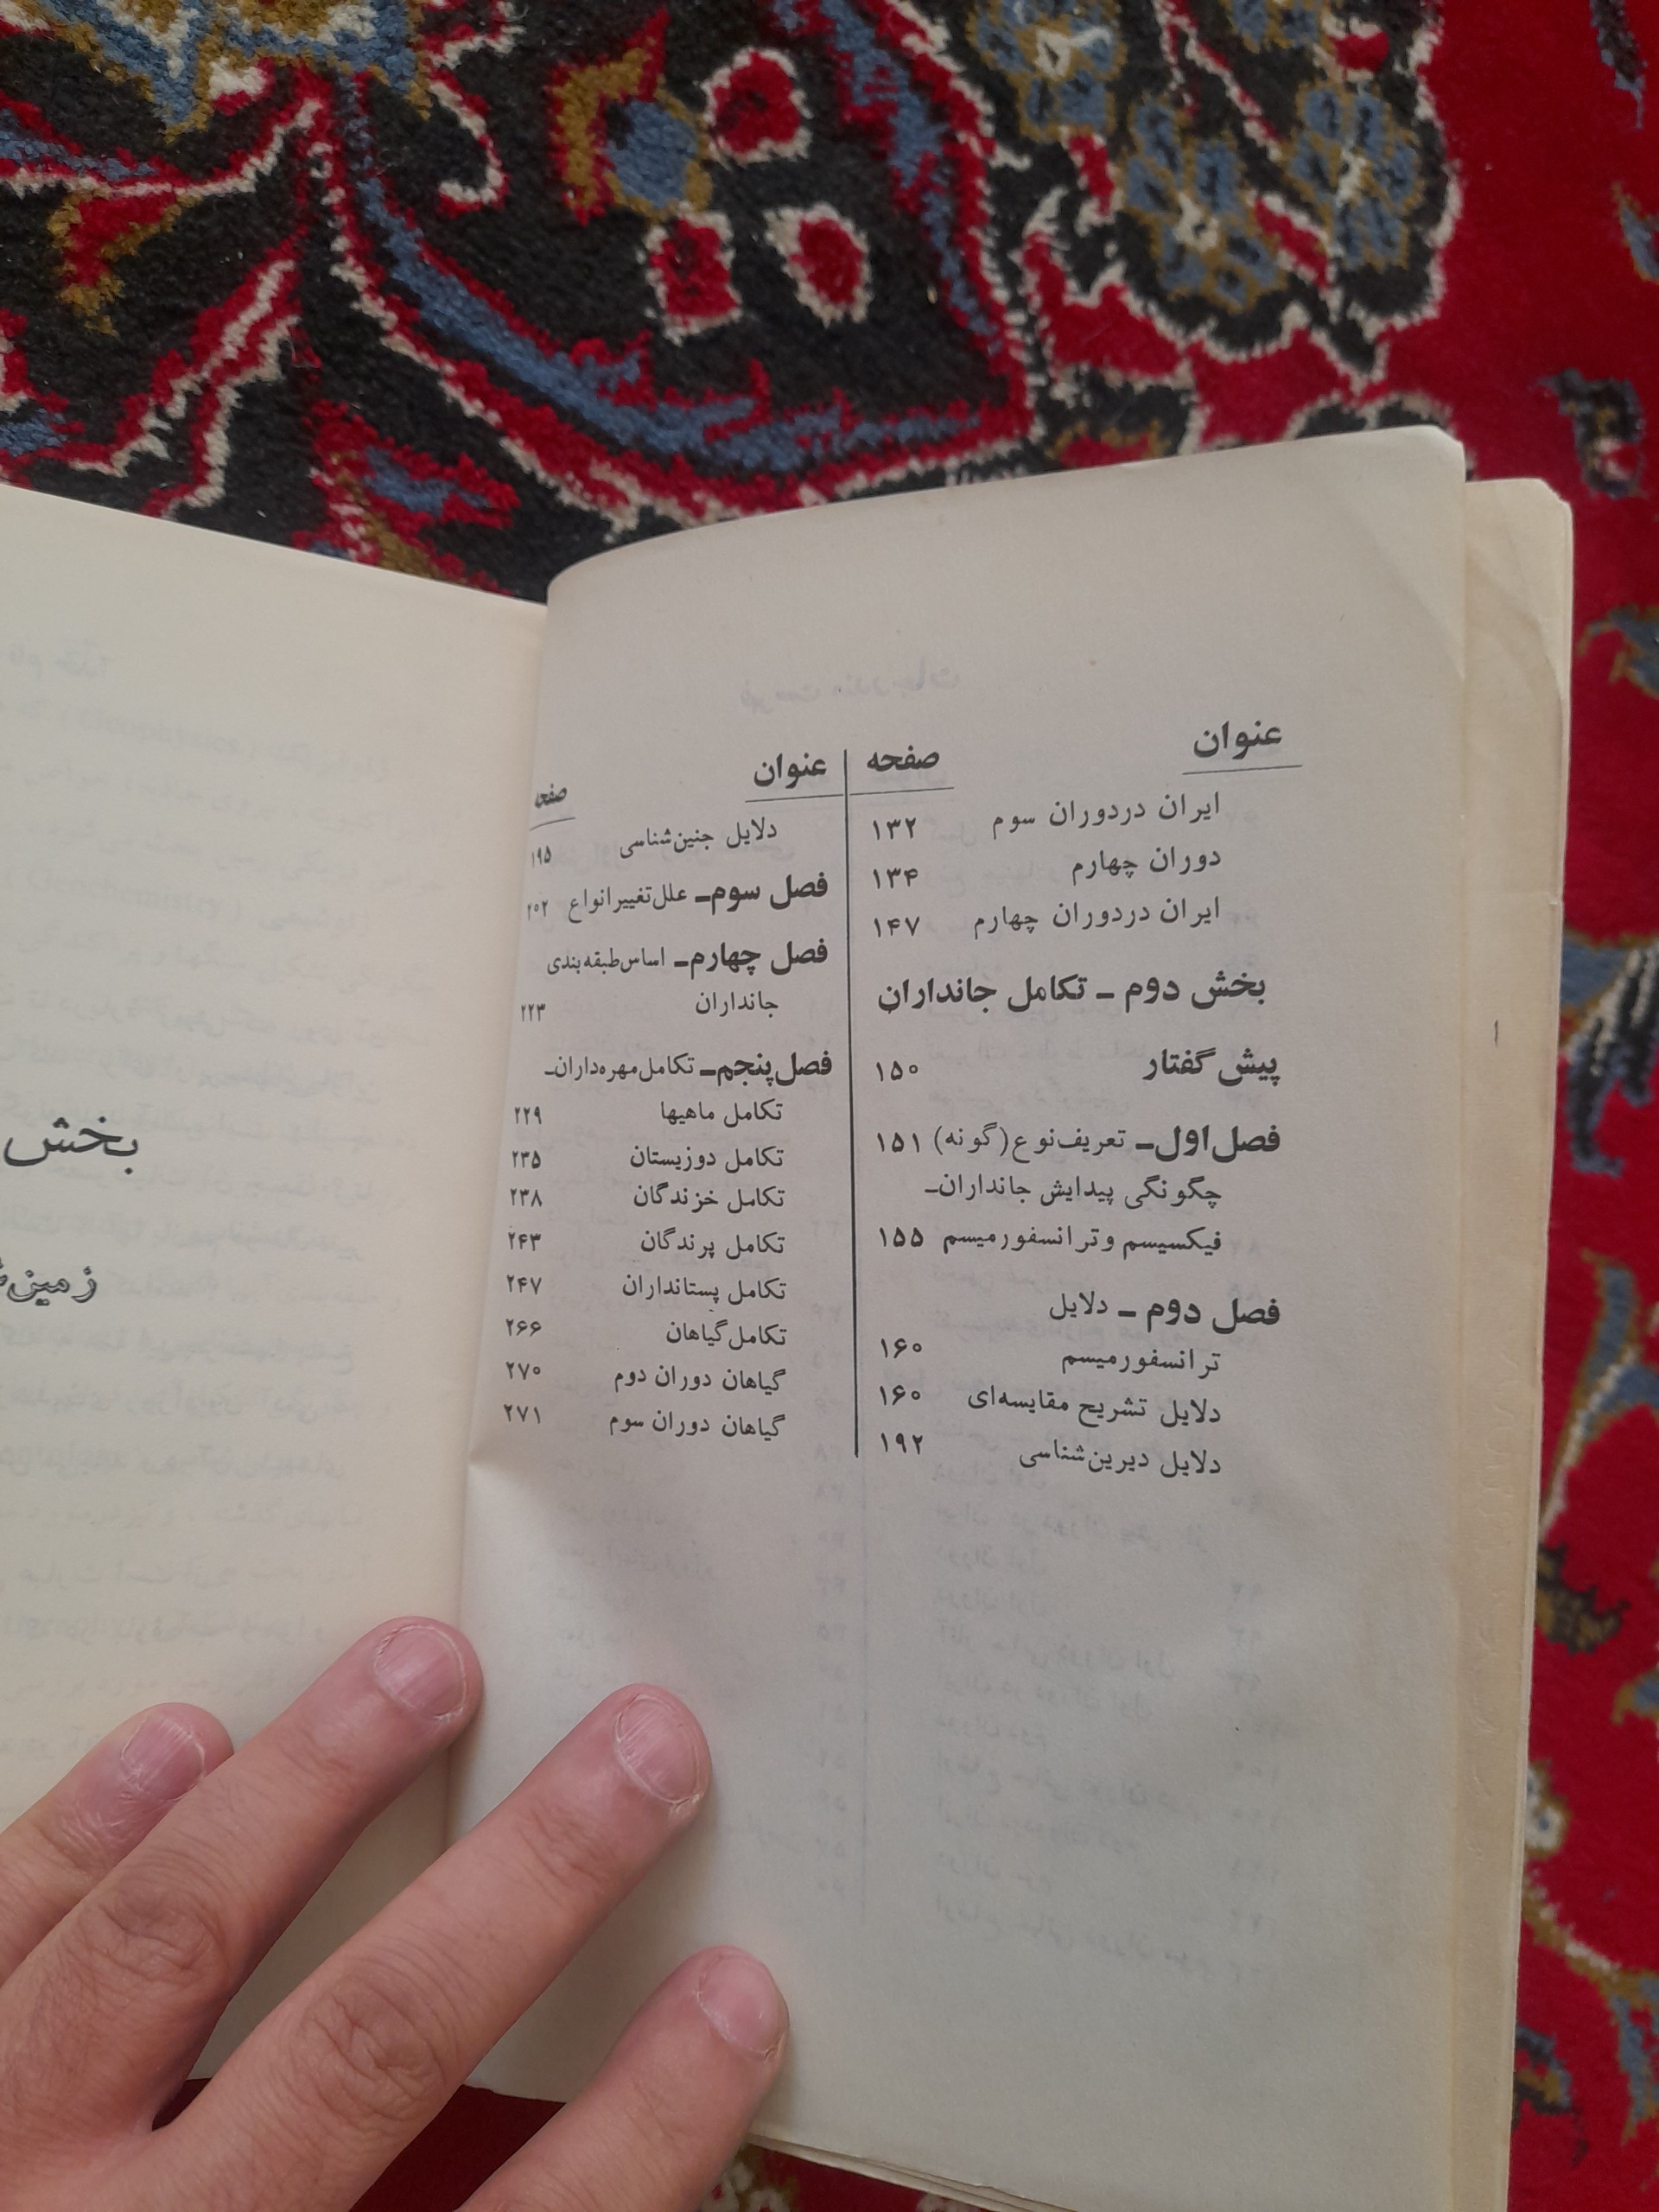 عنوان
صفحه
ایران دردوران سوم ۱۳۲
دوران چهارم ۱۳۴
ایران دردوران چهارم ۱۴۷
بخش دوم ـ تکامل جانداران
پیش گفتار ۱۵۰
فصل اول‌ـ تعریف نوع (گونه) ۱۵۱
چگونگی پیدایش جانداران‌ـ
فیکسیسم وترانسفورمیسم ۱۵۵
فصل دوم ـ دلایل
ترانسفورمیسم ۱۶۰
دلایل تشریح مقایسه‌ای ۱۶۰
دلایل دیرین‌شناسی ۱۹۲
عنوان
صفحه
دلایل جنین‌شناسی ۱۹۵
فصل سوم‌ـ علل تغییر انواع ۲۰۲
فصل چهارم‌ـ اساس طبقه بندی
جانداران ۲۲۳
فصل پنجم‌ـ تکامل مهره‌داران‌ـ
تکامل ماهیها ۲۲۹
تکامل دوزیستان ۲۳۵
تکامل خزندگان ۲۳۸
تکامل پرندگان ۲۴۳
تکامل پستانداران ۲۴۷
تکامل گیاهان ۲۶۶
گیاهان دوران دوم ۲۷۰
گیاهان دوران سوم ۲۷۱
بخش